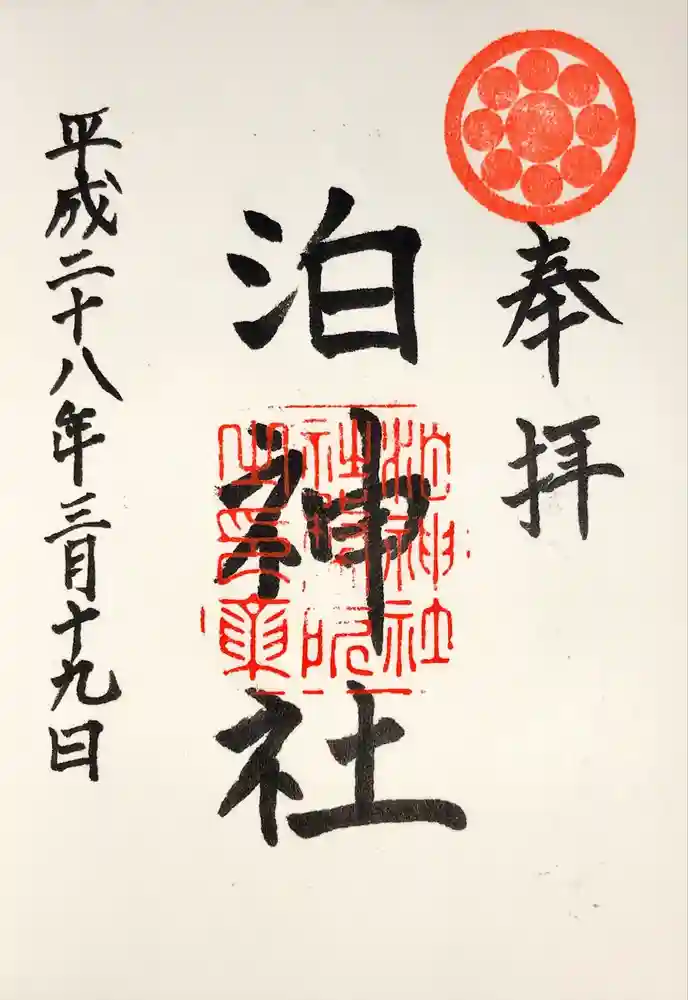 奉拝
泊神社
平成二十八年三月十九日